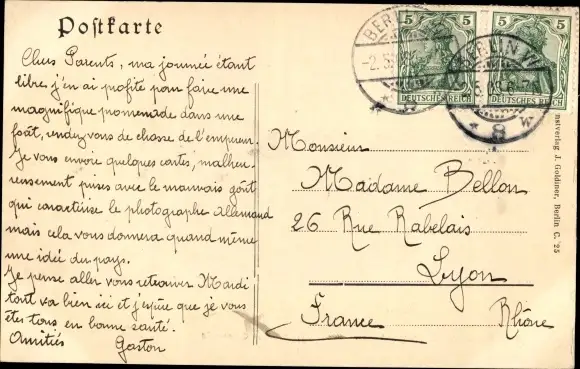 Postkarte
Chers Parents, ma journée étant
libre j'en ai profité pour faire une
magnifique promenade dans une
forêt, rendez vous de chasse de l'empereur.
Je vous envoie quelques cartes, malheu-
reusement prises avec le mauvais goût
qui caractérise le photographe Allemand
mais cela vous donnera quand même
une idée du pays.
Je pense aller vous retrouver Mardi
tout va bien ici et j'espère que je vous
êtes tous en bonne santé.
Amitiés Gaston
5 5
DEUTSCHES REICH
5 5
DEUTSCHES REICH
BERLIN W
BERLIN W
8
Monsieur
Madame Bellon
26 Rue Rabelais
Lyon
France Rhône
Kunstverlag J. Goldiner, Berlin C. 25